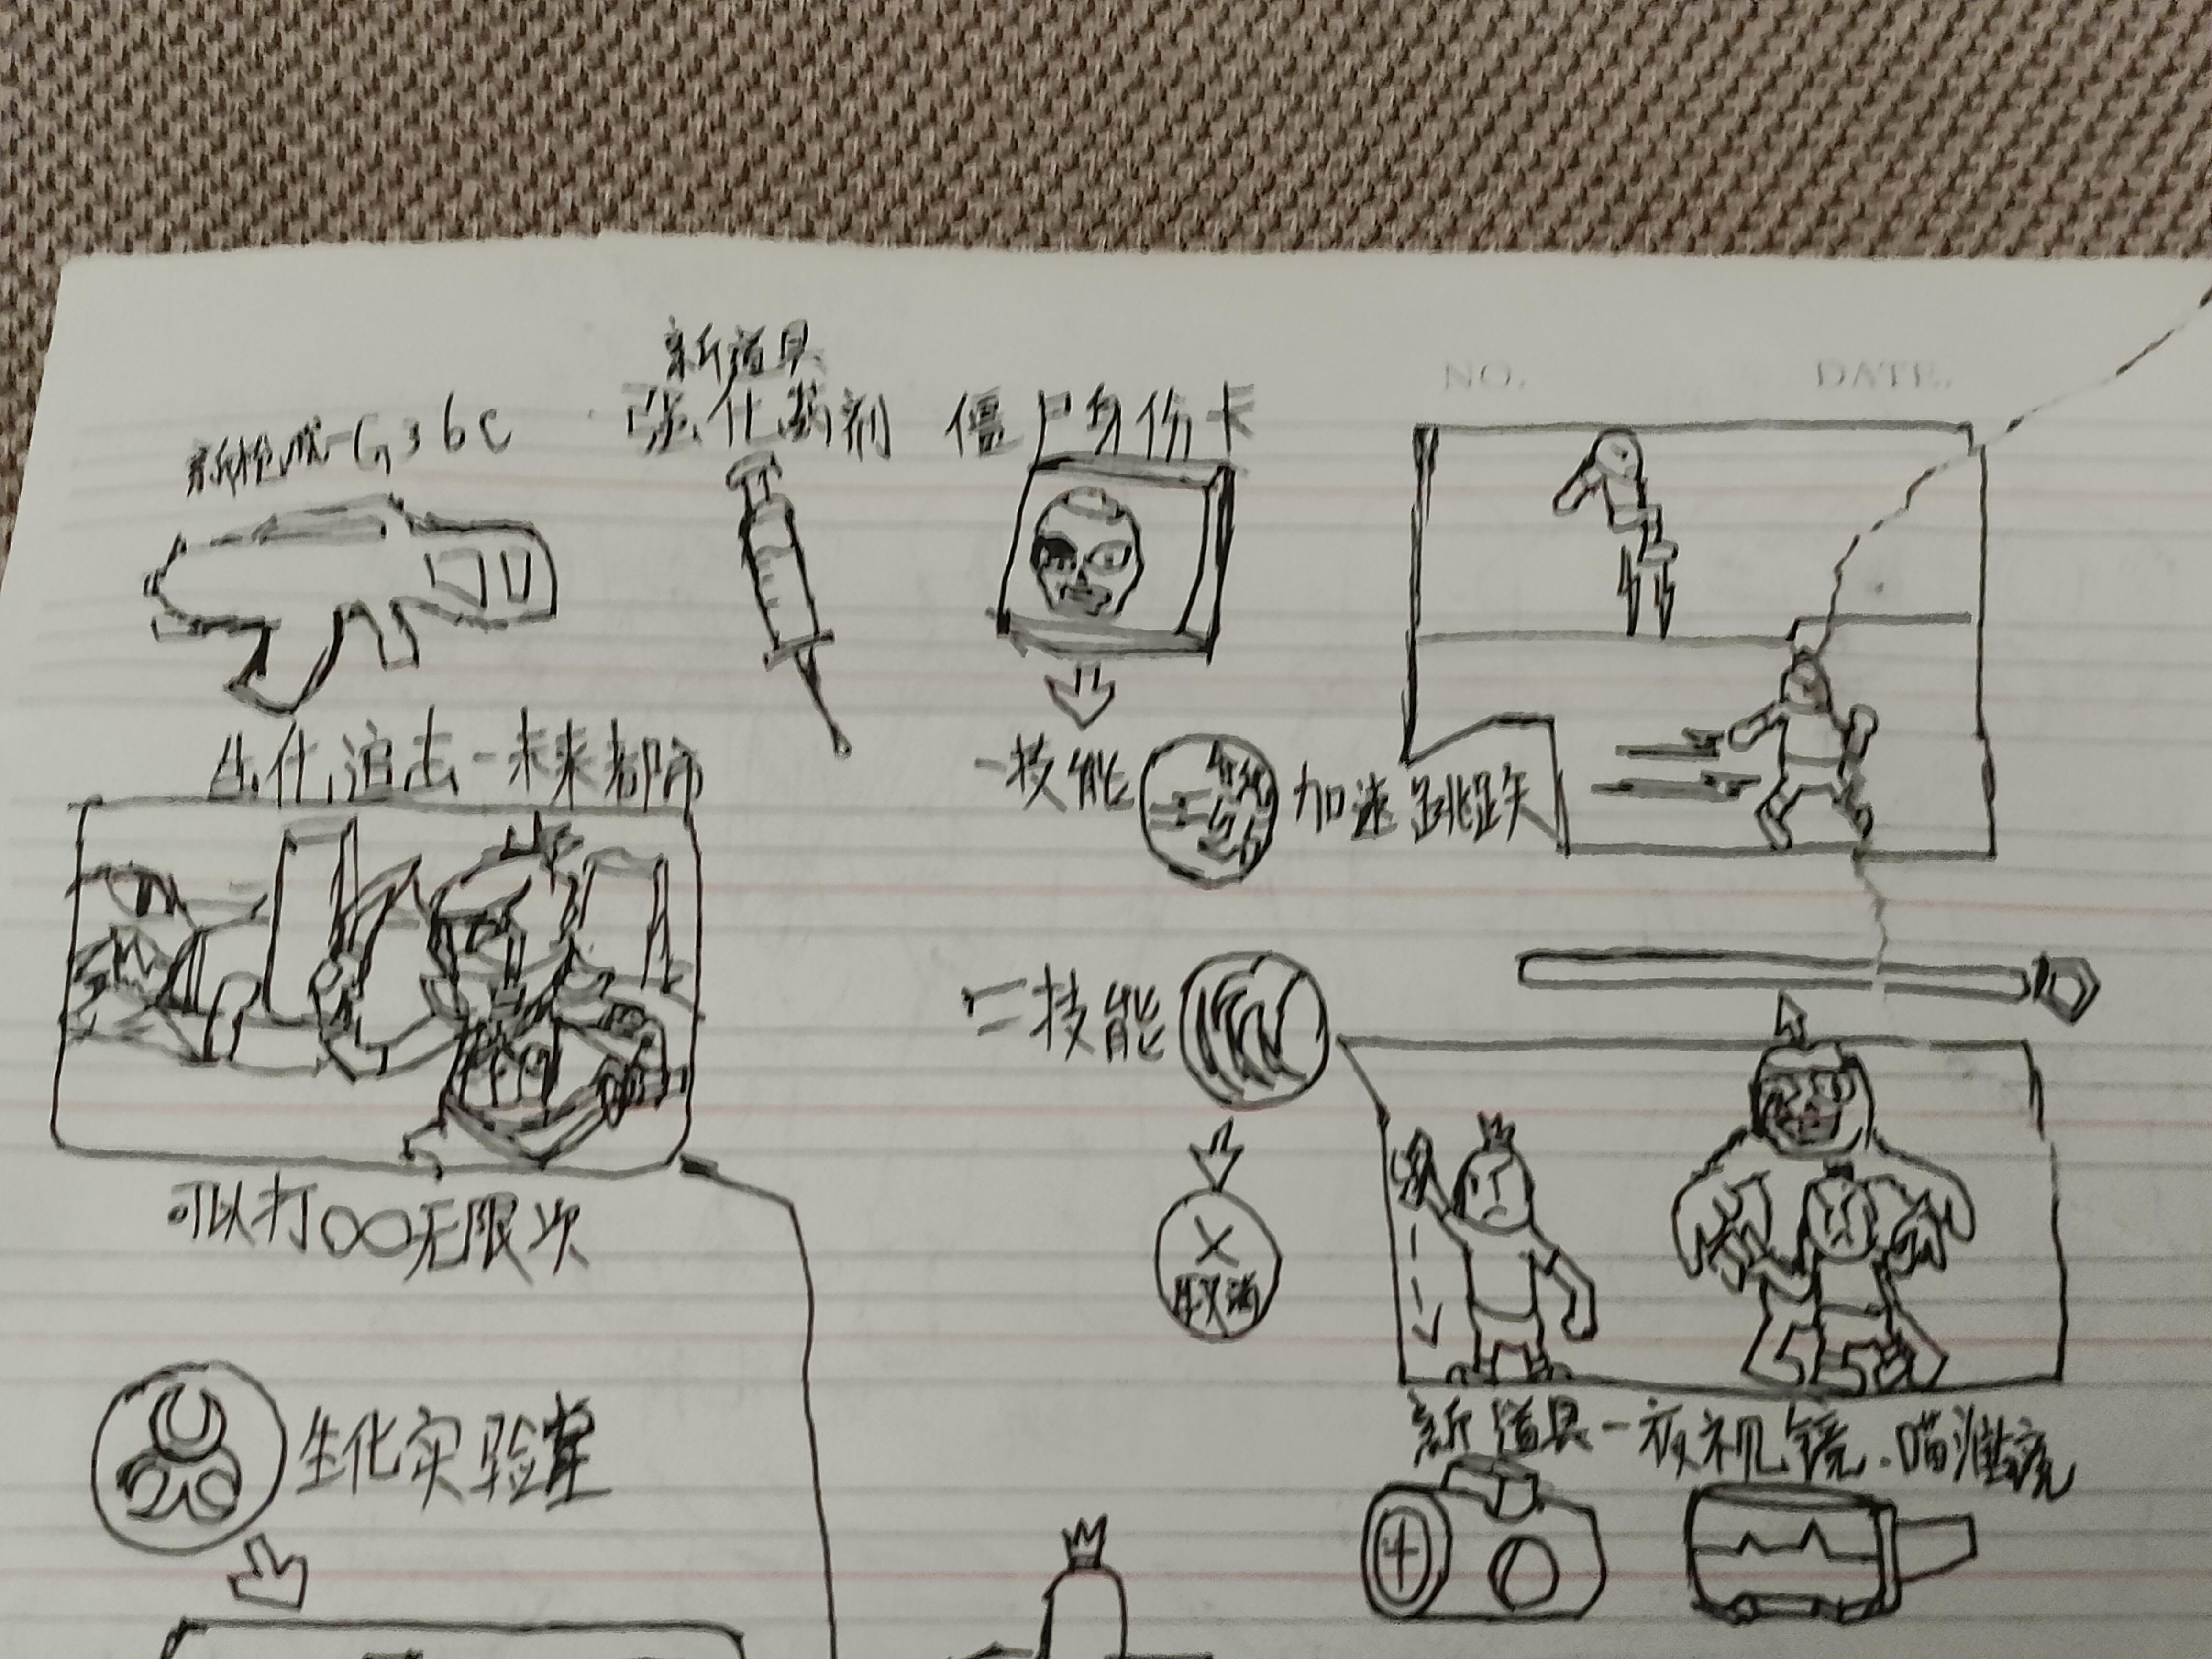 新道具
强化药剂
僵尸身份卡
新枪械-G36C
NO.
DATE.
生化追击-未来都市
一技能
加速跳跃
二技能
取消
可以打∞无限次
新道具-夜视镜.瞄准镜
生化实验室